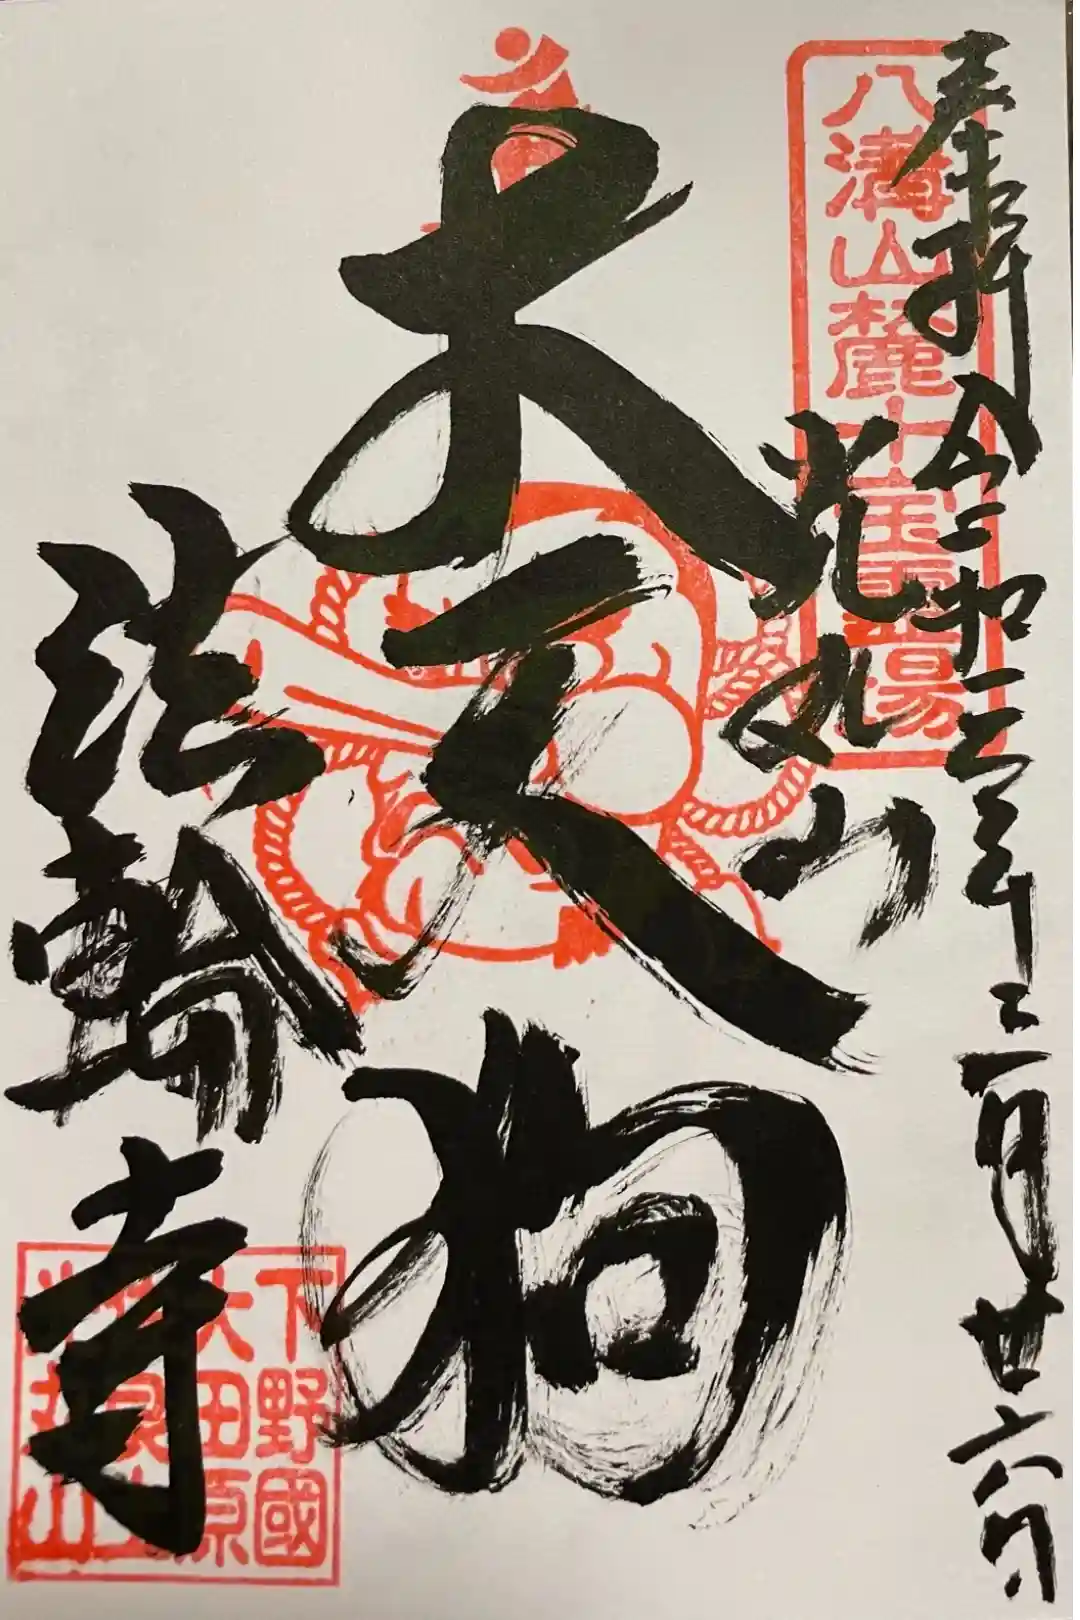 奉拝 令和 年 月廿六日
八溝山麓十宝霊場
光丸山
大天狗
法輪寺
下野國
大田原
佐良土
光丸山